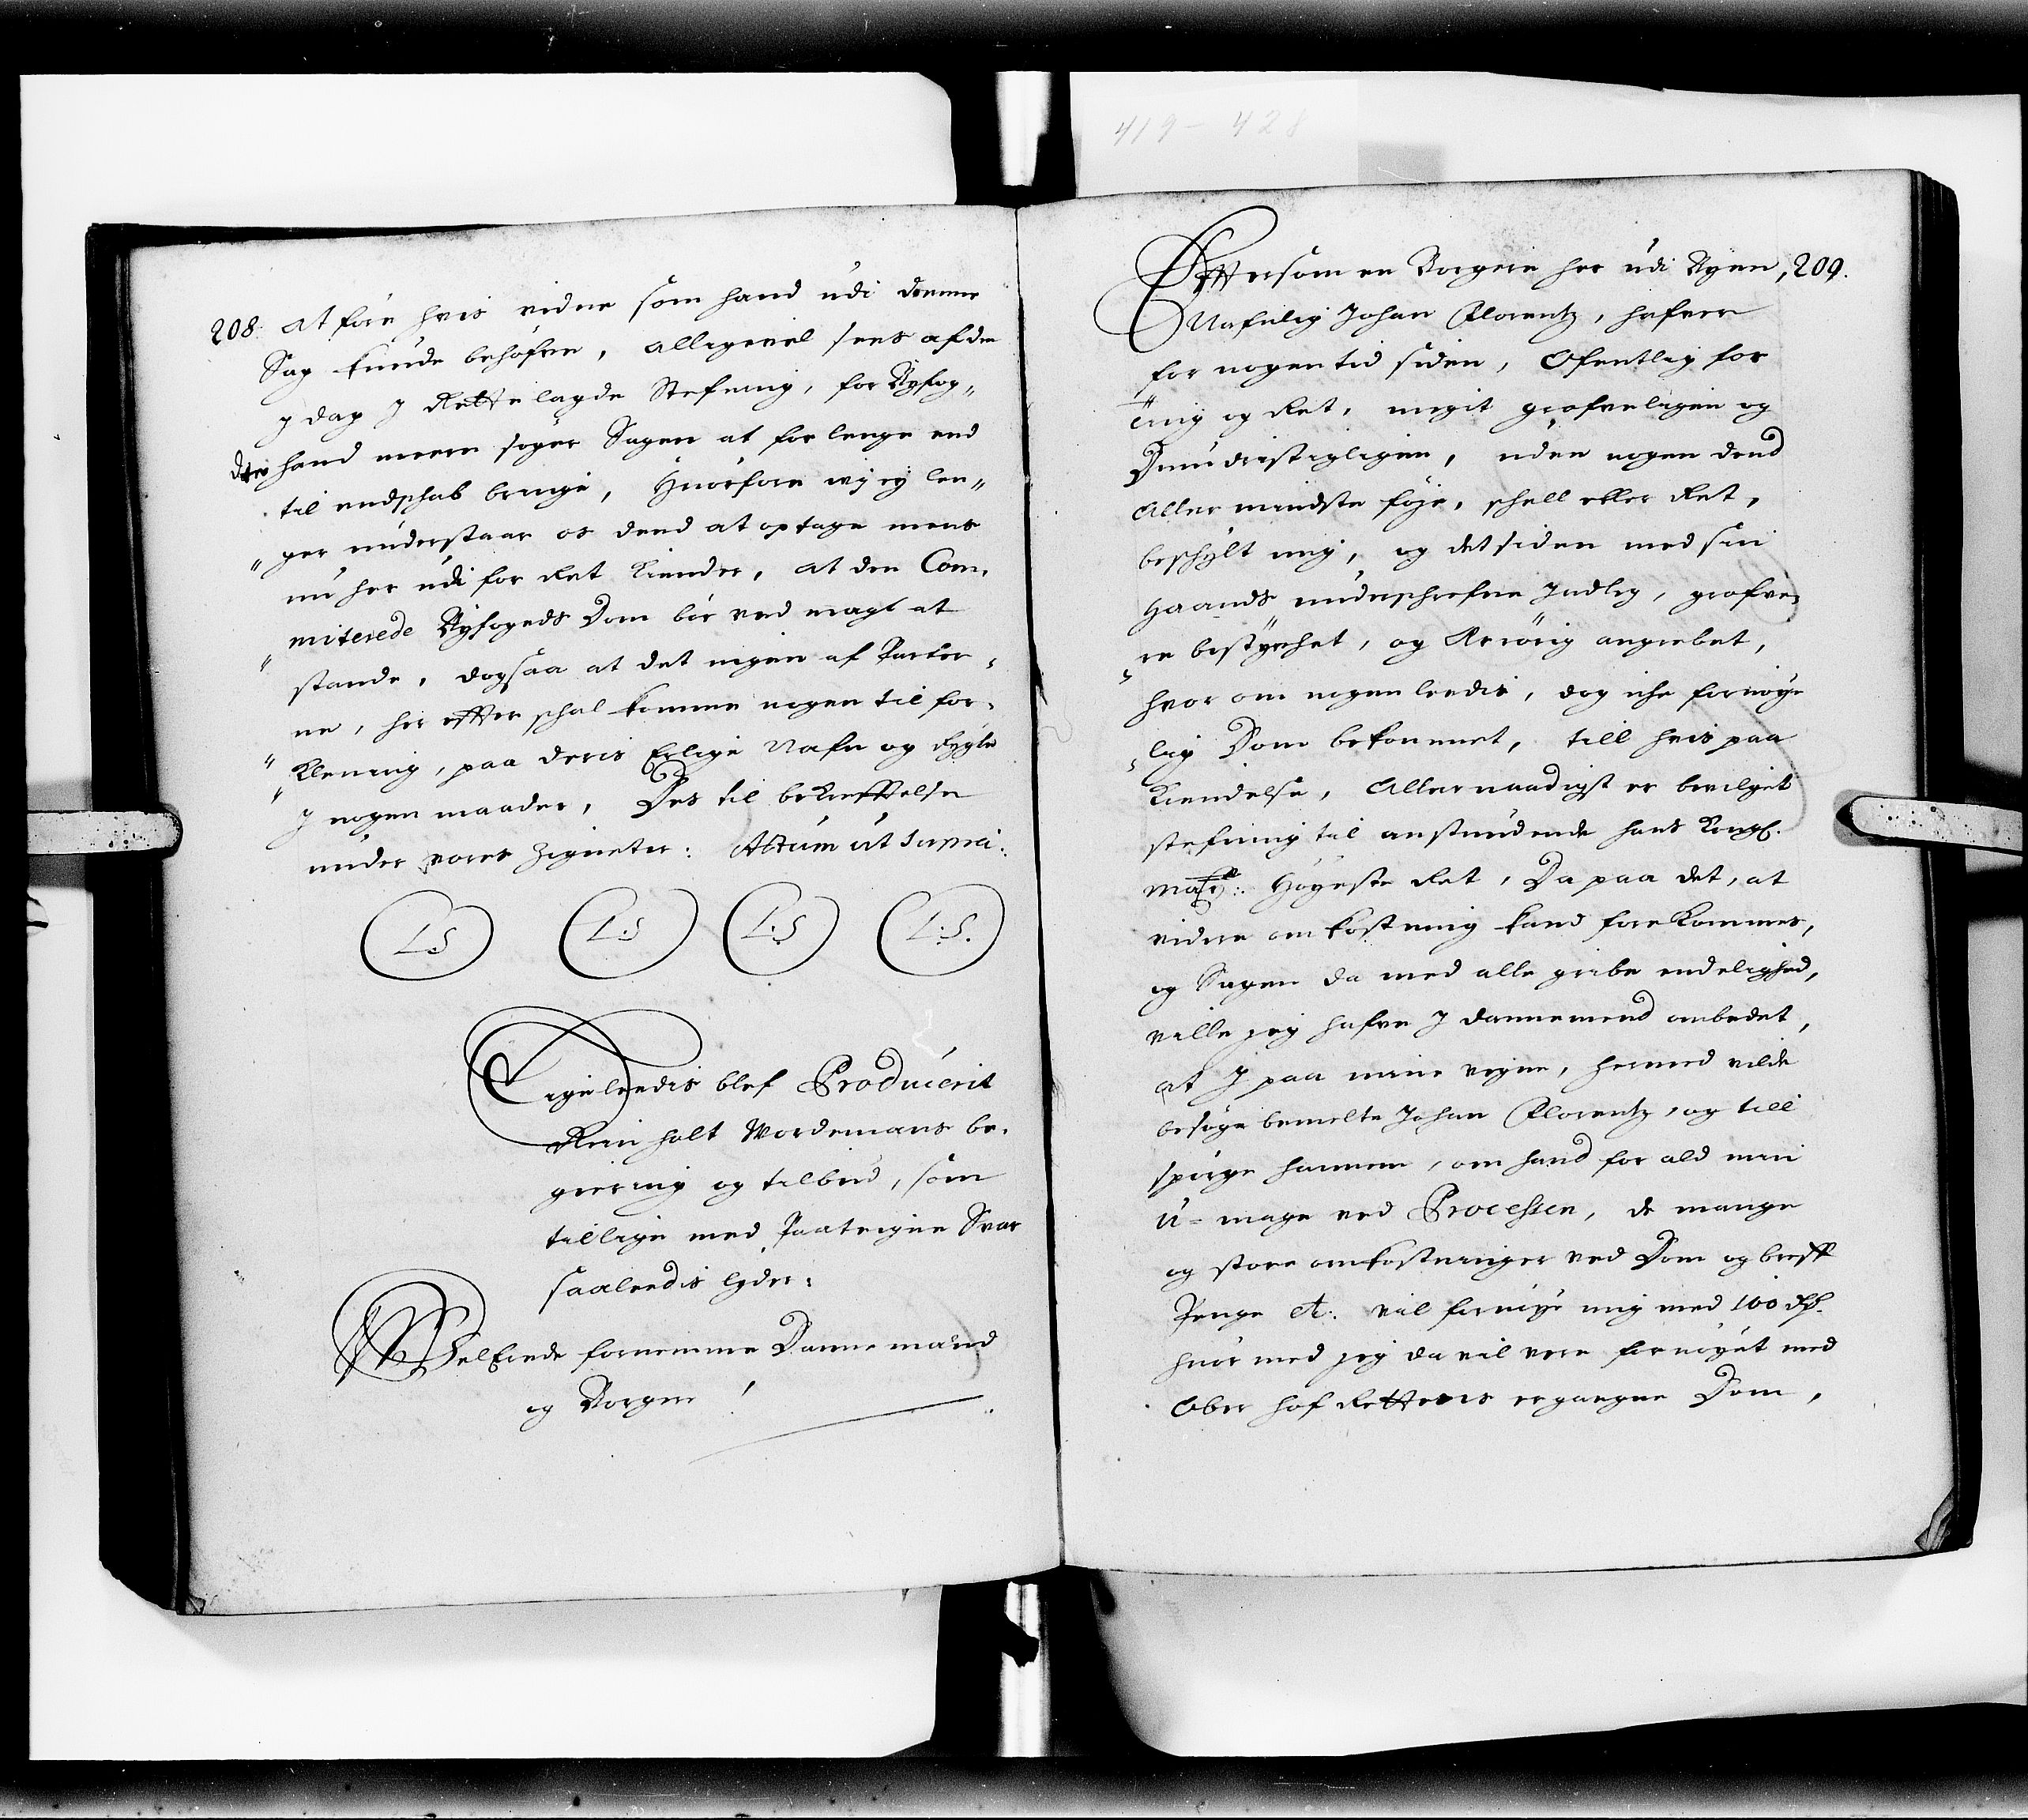 419 - 428
208. at före hvis vidne som hand udi denne
Sag kunde behøfve, alligevel sees af den
i dag i Rette lagde Stefning, for Byfog„
den hand meere søger Sagen at forlenge end
til endschab bringe, Hvorfore vi ej len„
„ger understaar os dend at optage mens
nu her udi for Ret Kiender, at den Com„
„miterede Byfogeds Dom bør ved magt at
stande, dog saa at det ingen af Parter„
ne, her effter schal komme nogen til for„
„Kleining, paa deris Erlige Nafn og Rygte
„I nogen maader, Des til bekrefftelse
under vores Zigneter: Actum ut supra:
L:S L:S L:S L:S.
Ligeleedis blef Producerit
Reinholt Wordemans be„
giering og tilbud, som
tillige med Paategne Svar
saaleedis lyder:
WelEnde fornemme Dannemænd
og Borgere!
Effter som en Borgere her udi Byen, 209.
Nafnlig Johan Florentz, hafver
for nogen tid siden, Ofentlig for
Ting og Ret, megit grofveligen og
Dumdristigligen, uden nogen dend
Aller mindste føje, schell eller Ret,
beschylt mig, og det siden med sin
Haands underschrefne Indleg, grofve„
„re bestyrchet, og Ærrørig angrebet,
hvor om nogenleedis, dog iche fornøye
„lig Dom bekommet, till hvis paa
Kiendelse, Allernaadigst er bevilget
stefning til anstundende hans Kongl.
May:ts Høyeste Ret, Da paa det, at
videre omkostning kand forekommes,
og Sagen da med alle gribe endelighed,
ville jeg hafve I dannemend ombedet,
at I paa mine vegne, hermed vilde
besøge bemelte Johan Florentz, og till
spørge hannem, om hand for ald min
u-mage ved Processen, de mange
og store omkostninger ved Dom og breff
Penge etc: vil fornøye mig med 100 Rd.
hvor med jeg da vil vere fornøyet med
Ober hof Rettens ergangne Dom,